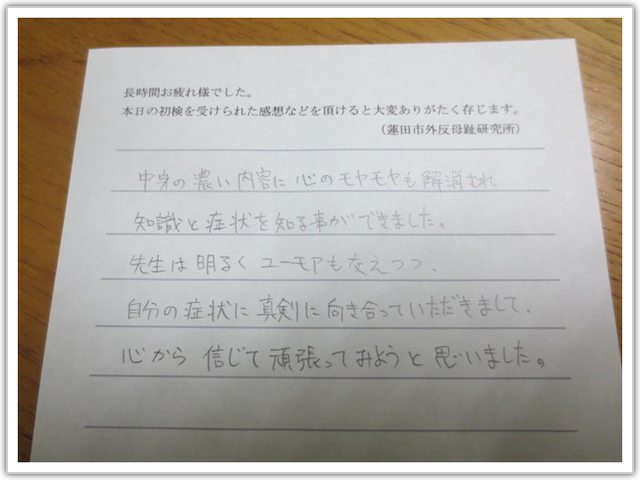 長時間お疲れ様でした。
本日の初検を受けられた感想などを頂けると大変ありがたく存じます。
（蓮田市外反母趾研究所）
中身の濃い内容に心のモヤモヤも解消され
知識と症状を知る事ができました。
先生は明るくユーモアも交えつつ、
自分の症状に真剣に向き合っていただきまして、
心から信じて頑張ってみようと思いました。